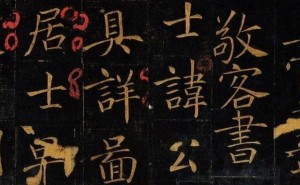 敬客書
士諱公
具詳啚
居士早